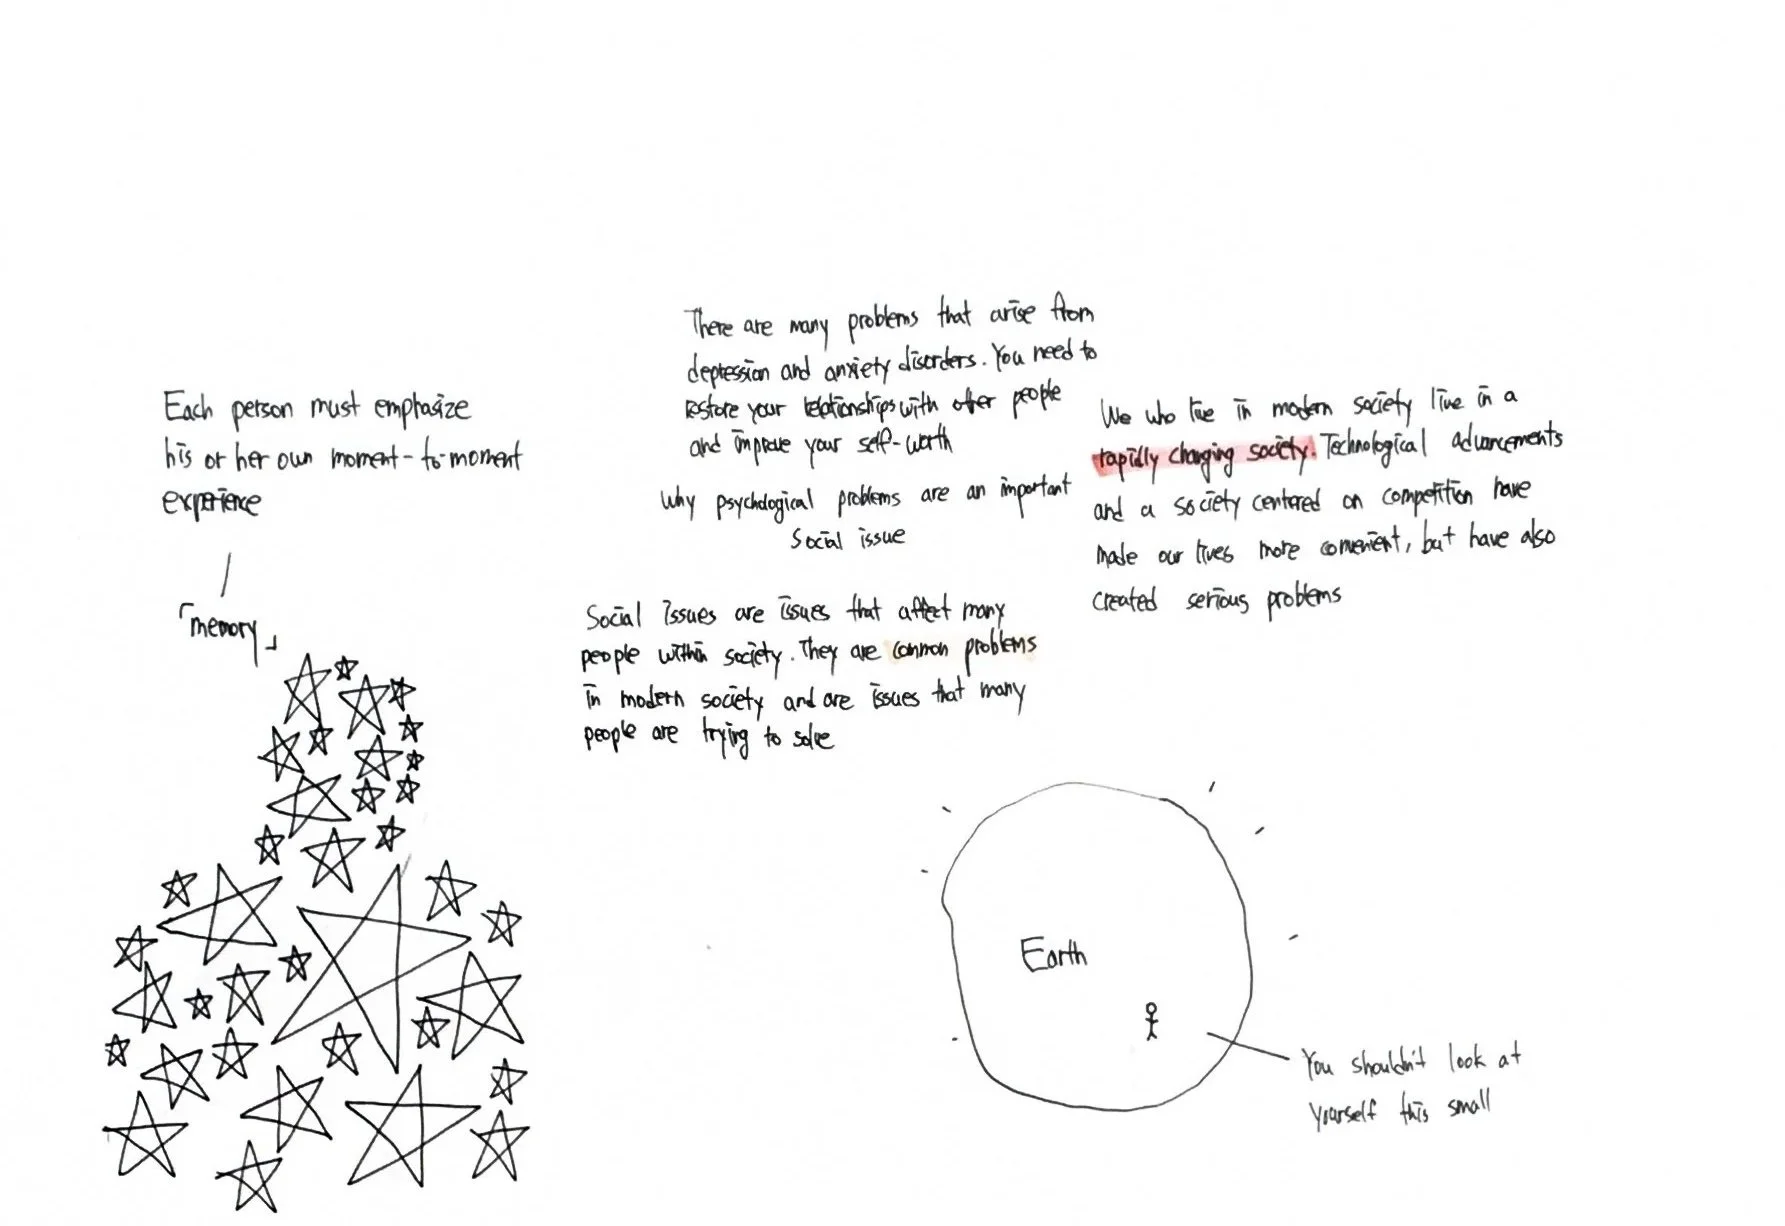 Each person must emphasize
his or her own moment-to-moment
experience
「memory」
There are many problems that arise from
depression and anxiety disorders. You need to
restore your relationships with other people
and improve your self-worth
Why psychological problems are an important
Social issue
Social issues are issues that affect many
people within society. They are common problems
in modern society and are issues that many
people are trying to solve
We who live in modern society live in a
rapidly changing society. Technological advancements
and a society centered on competition have
made our lives more convenient, but have also
created serious problems
Earth
You shouldn't look at
yourself this small